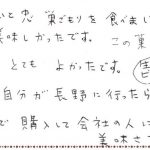 いと忠 巣ごもりを食べまし
美味しかったです。この菓
とてもよかったです。
自分が長野に行ったら
で購入して会社の人に
美味さ